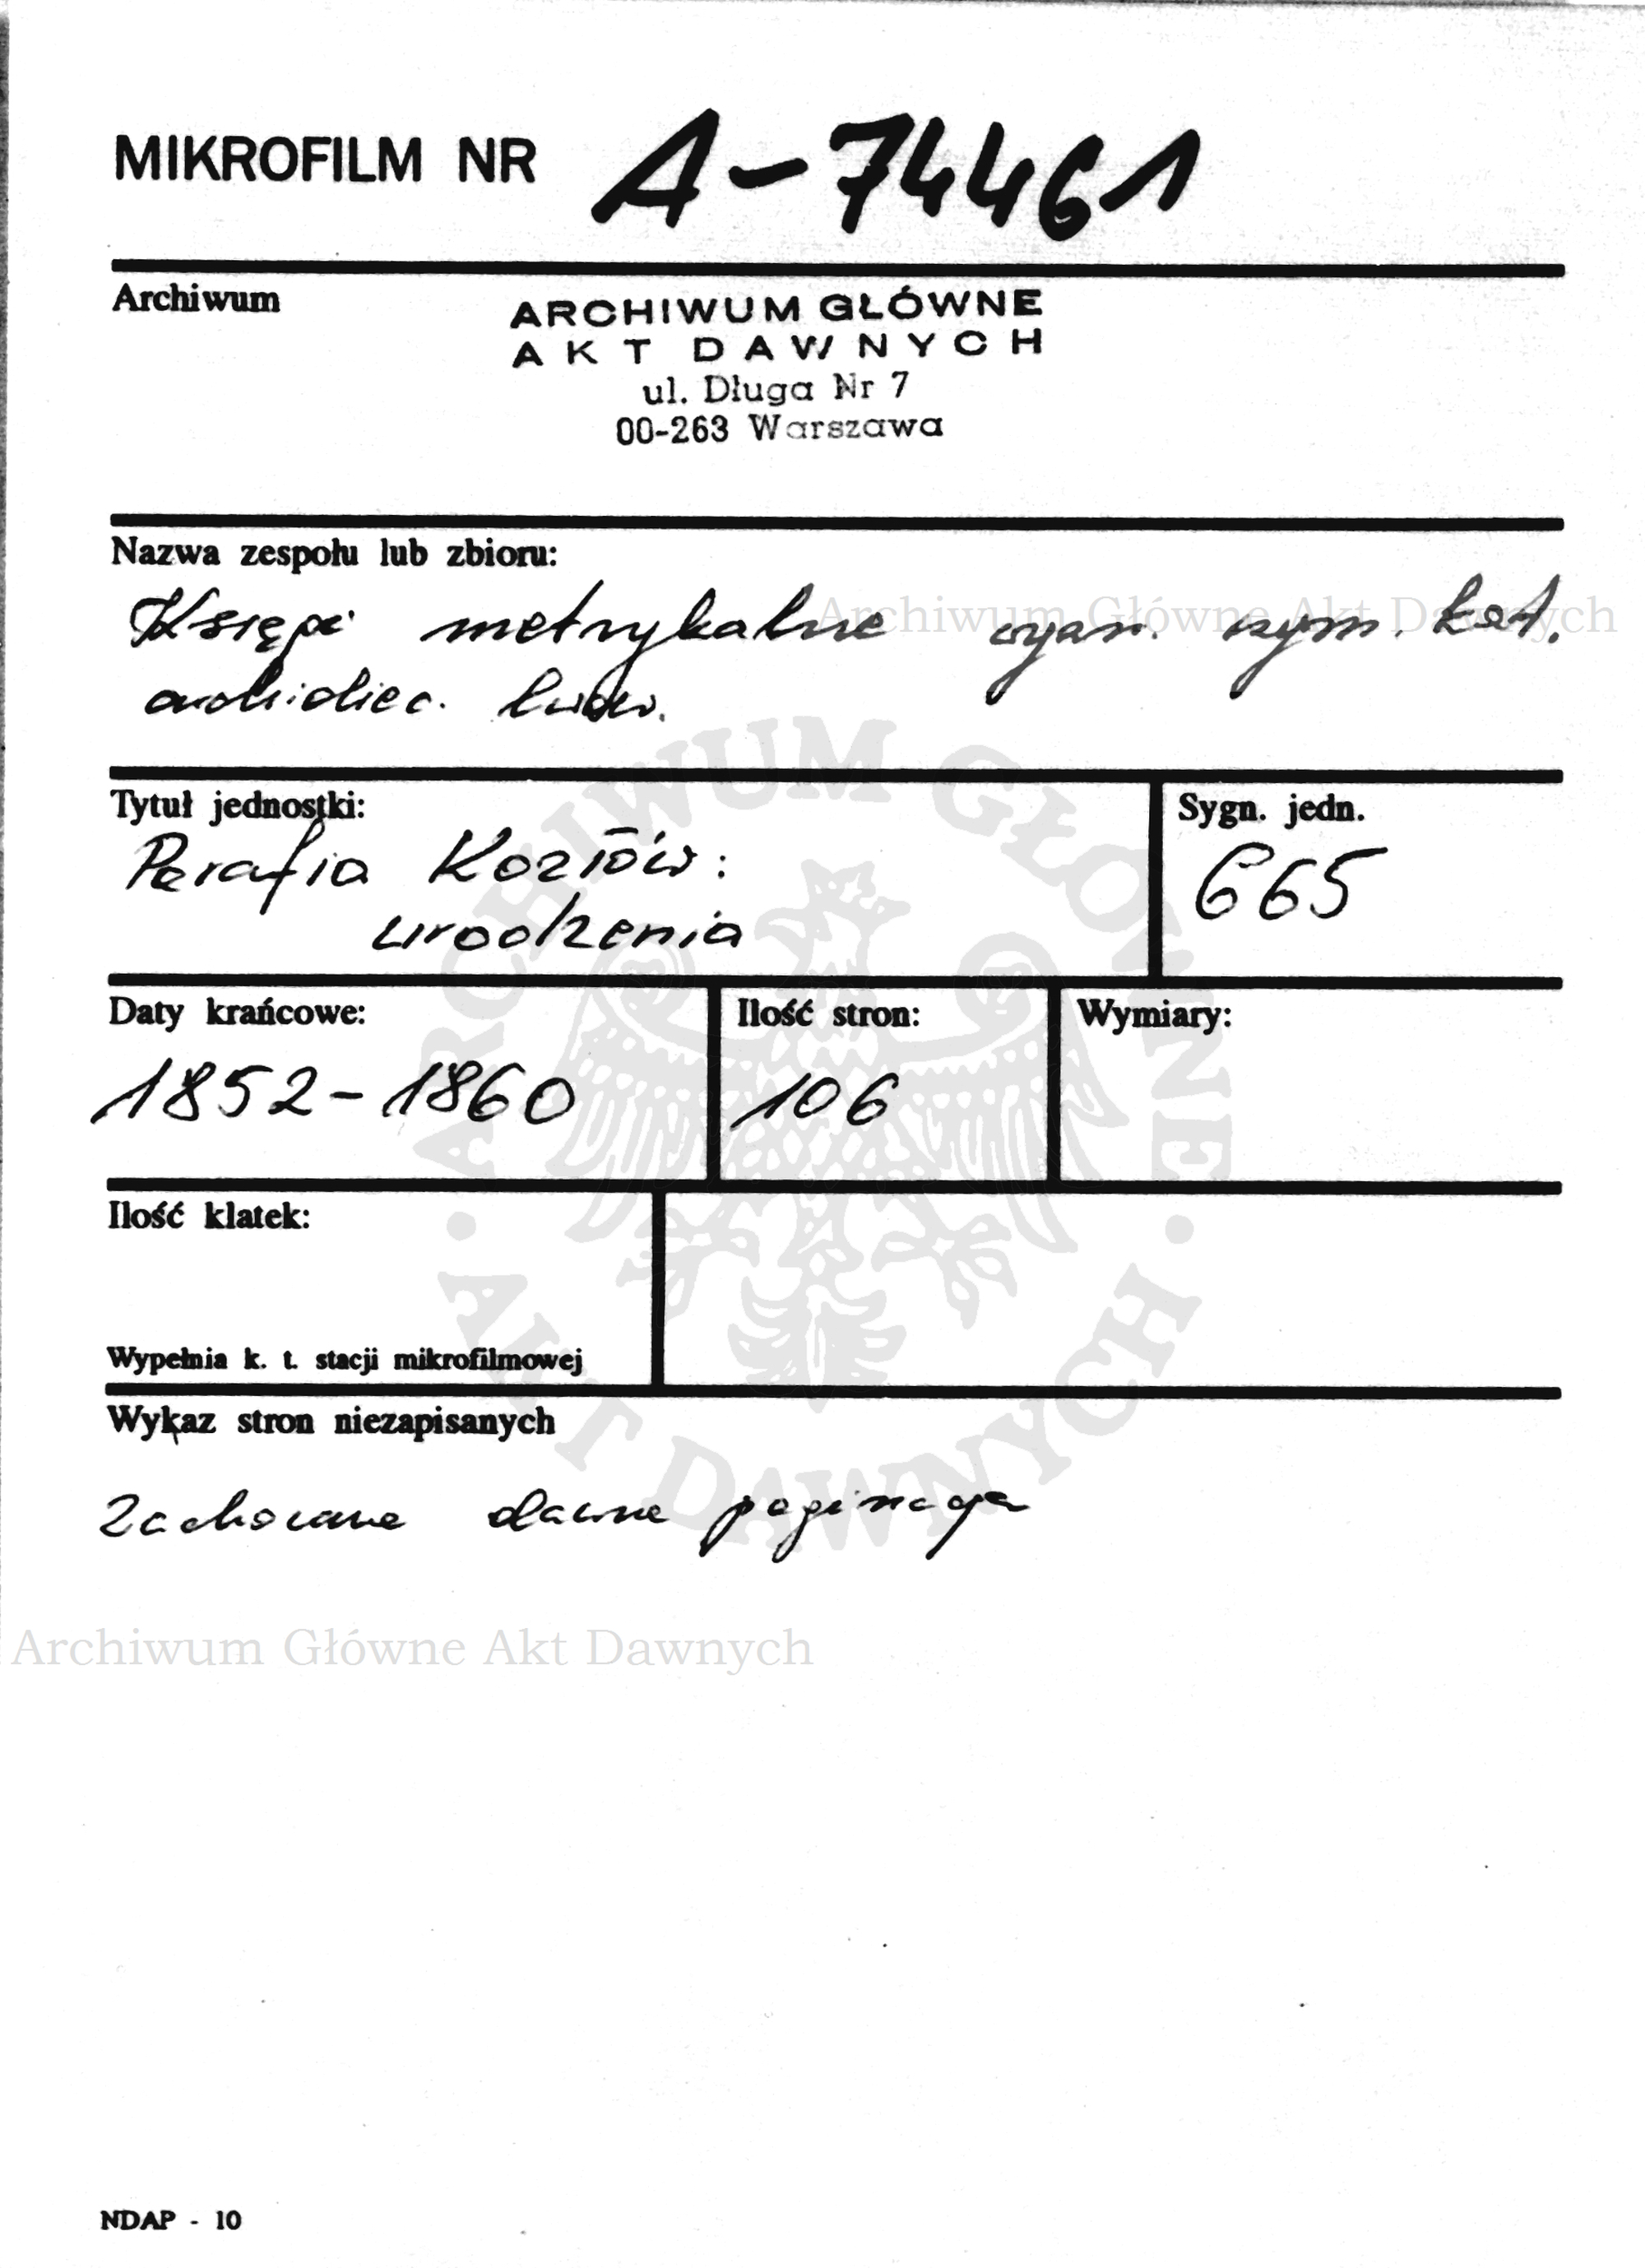 MIKROFILM NR A-74461
Archiwum
ARCHIWUM GŁÓWNE
AKT DAWNYCH
ul. Długa Nr 7
00-263 Warszawa
Nazwa zespołu lub zbioru:
Księgi metrykalne wyzn. rzym. kat.
archidiec. lwow.
Archiwum Główne Akt Dawnych
Tytuł jednostki:
Parafia Kozłów:
urodzenia
Sygn. jedn.
665
Daty krańcowe:
1852-1860
Ilość stron:
106
Wymiary:
Ilość klatek:
Wypełnia k. t. stacji mikrofilmowej
Wykaz stron niezapisanych
Zachowana dawna paginacja
ARCHIWUM GŁÓWNE · AKT DAWNYCH ·
Archiwum Główne Akt Dawnych
NDAP - 10